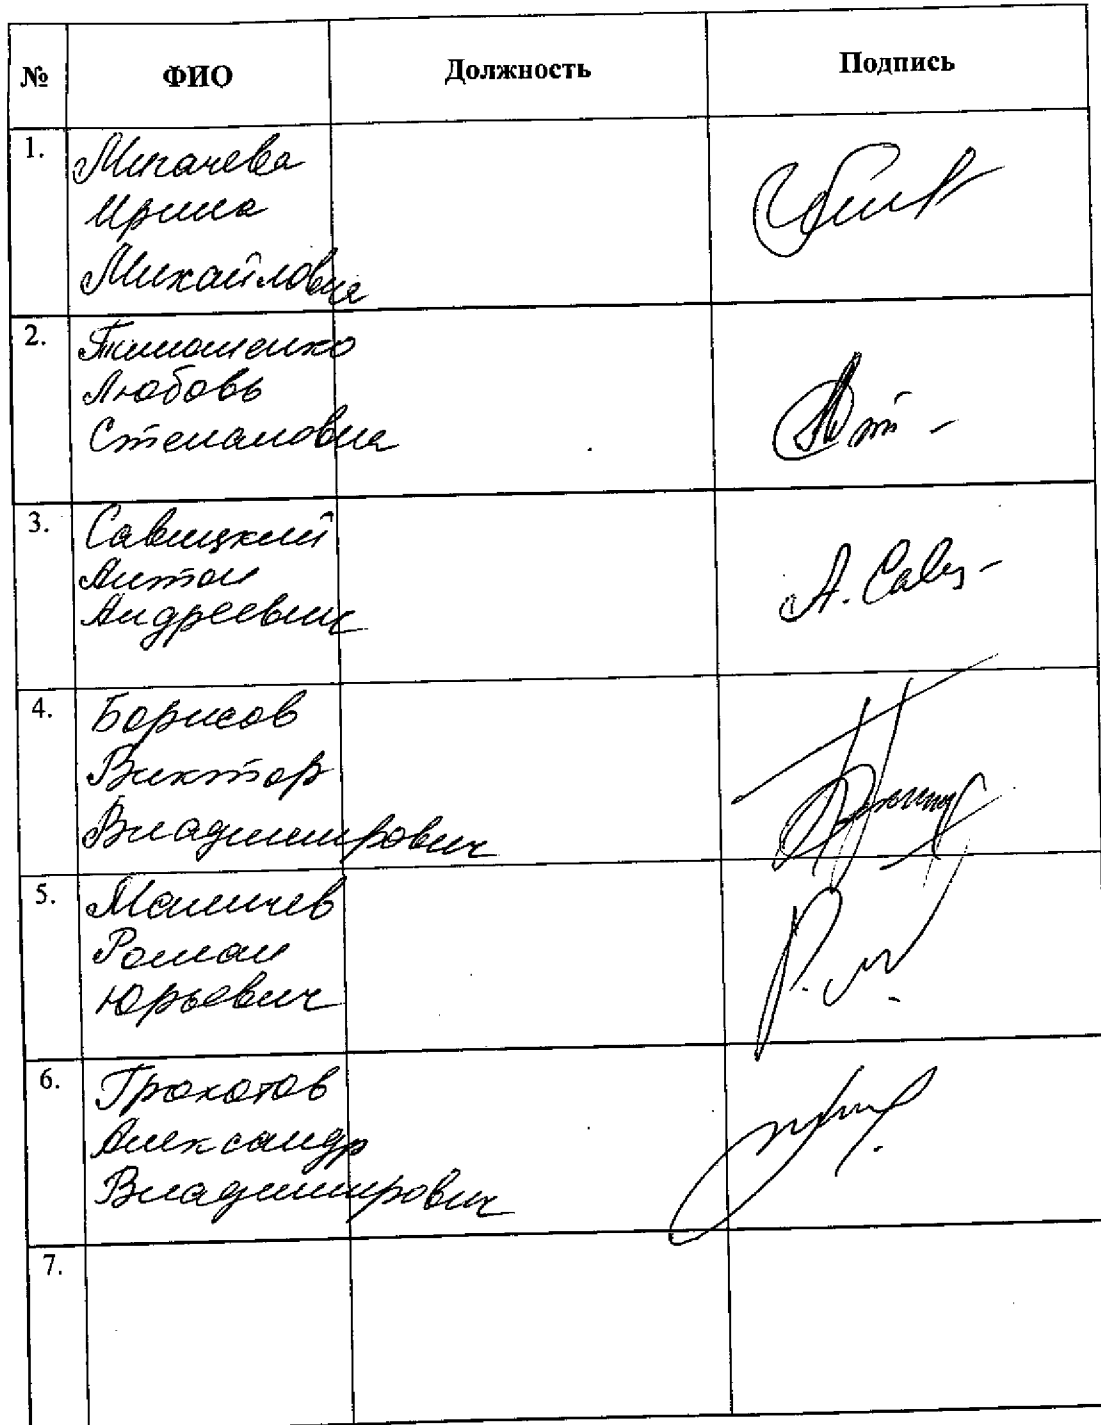 № ФИО Должность Подпись
1. Михачева
Ирина
Михайловна
2. Тимошенко
Любовь
Степановна
3. Савицкий
Антон
Андреевич
А. Савиц-
4. Борисов
Виктор
Владимирович
5. Маличев
Роман
Юрьевич
Р. М.
6. Грохотов
Александр
Владимирович
7.